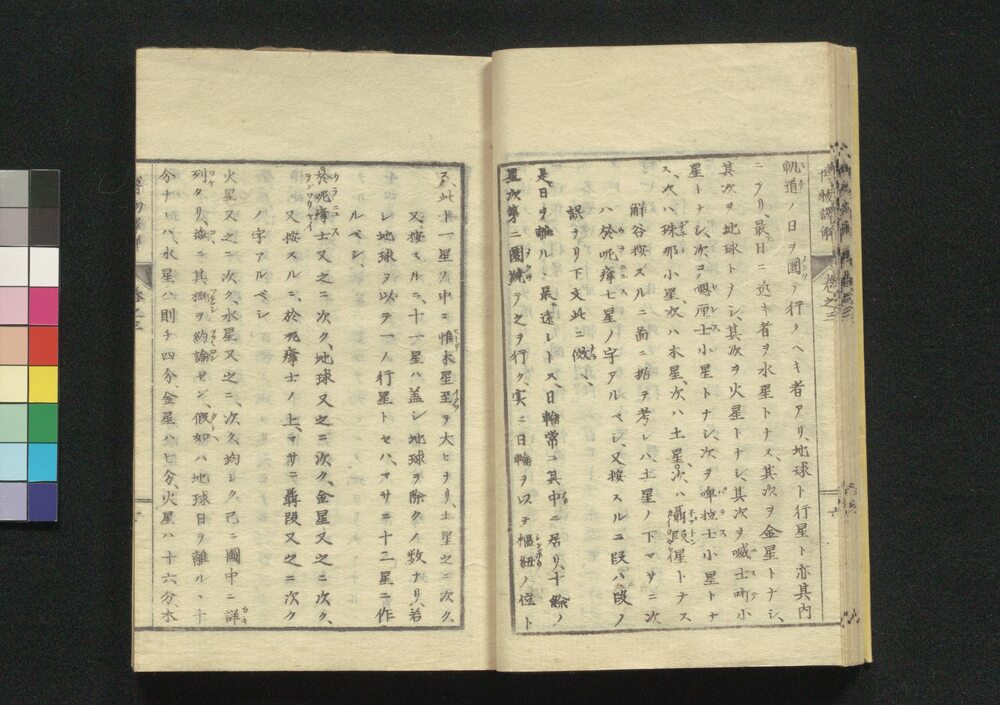 博物語解 巻之三
軌道ノ日ヲ圜テ行ノヘキ者アリ、地球ト行星ト亦其内
ニアリ、最日ニ近キ者ヲ水星トナス、其次ヲ金星トナシ、
其次ヲ地球トナシ、其次ヲ火星トナシ、其次ヲ喊士呌小
星トナシ、次ヲ嘶厘士小星トナシ、次ヲ啤拉士小星トナ
ス、次ハ珠那小星、次ハ木星、次ハ土星、次ハ聶段星トナス
解谷按スルニ啚ニ拠テ考レハ、土星ノ下マサニ次
ハ於呃瘴士星ノ字アルベシ、又按スルニ段ハ段ノ
誤ナリ下文此ニ倣へ、
是、日ヲ離ル、最遠シトス、日輪常ニ其中ニ居リ、十餘ノ
星次第ニ圜繞ヲ之ヲ行ク、実ニ日輪ヲ以テ樞紐ノ位ト
ス、此十一星ノ中ニ惟木星至ヲ大ヒナリ、土星之ニ次ク、
又、按スルニ、十一星ハ蓋シ地球ヲ除クノ数ナリ、若
シ地球ヲ以テ一ノ行星トセハ、マサニ十二星ニ作
ルベシ、
於呃瘴士又之ニ次ク、地球又之ニ次ク、金星又之ニ次ク、
又、按スルニ、於呃瘴士ノ上、マサニ聶段又之ニ次ク
ノ字アルベシ
火星又之ニ次ク、水星又之ニ、次ク、均シク、已ニ圖中ニ詳
列タリ、故ニ其撮ヲ約論セン、假如ハ地球日ヲ離ル、十
分ナレハ、水星ハ則チ四分、金星ハ七分、火星ハ十六分、木